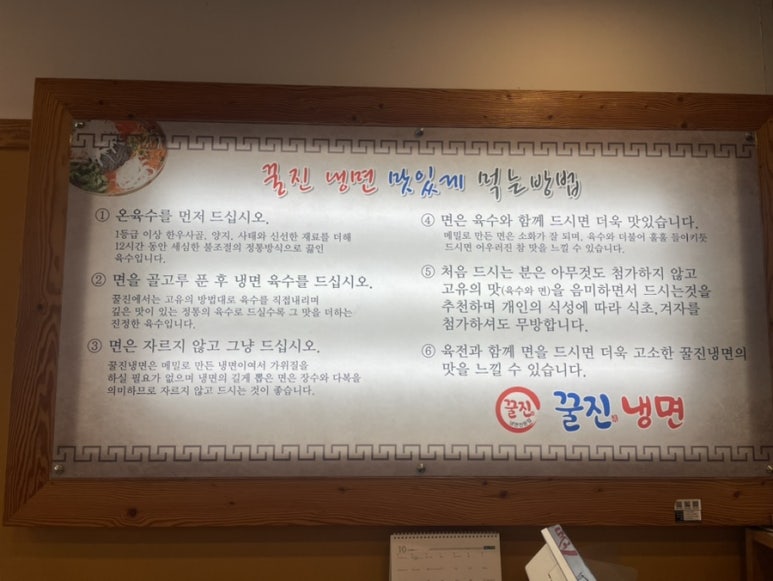 꿀진 냉면 맛있게 먹는방법
① 온육수를 먼저 드십시오.
1등급 이상 한우사골, 양지, 사태와 신선한 재료를 더해
12시간 동안 세심한 불조절의 정통방식으로 끓인
육수입니다.
② 면을 골고루 푼 후 냉면 육수를 드십시오.
꿀진에서는 고유의 방법대로 육수를 직접내리며
깊은 맛이 있는 정통의 육수로 드실수록 그 맛을 더하는
진정한 육수입니다.
③ 면은 자르지 않고 그냥 드십시오.
꿀진냉면은 메밀로 만든 냉면이여서 가위질을
하실 필요가 없으며 냉면의 길게 뽑은 면은 장수와 다복을
의미하므로 자르지 않고 드시는 것이 좋습니다.
④ 면은 육수와 함께 드시면 더욱 맛있습니다.
메밀로 만든 면은 소화가 잘 되며, 육수와 더불어 훌훌 들이키듯
드시면 어우러진 참 맛을 느낄 수 있습니다.
⑤ 처음 드시는 분은 아무것도 첨가하지 않고
고유의 맛(육수와 면)을 음미하면서 드시는것을
추천하며 개인의 식성에 따라 식초,겨자를
첨가하셔도 무방합니다.
⑥ 육전과 함께 면을 드시면 더욱 고소한 꿀진냉면의
맛을 느낄 수 있습니다.
꿀진
꿀진 냉면
10